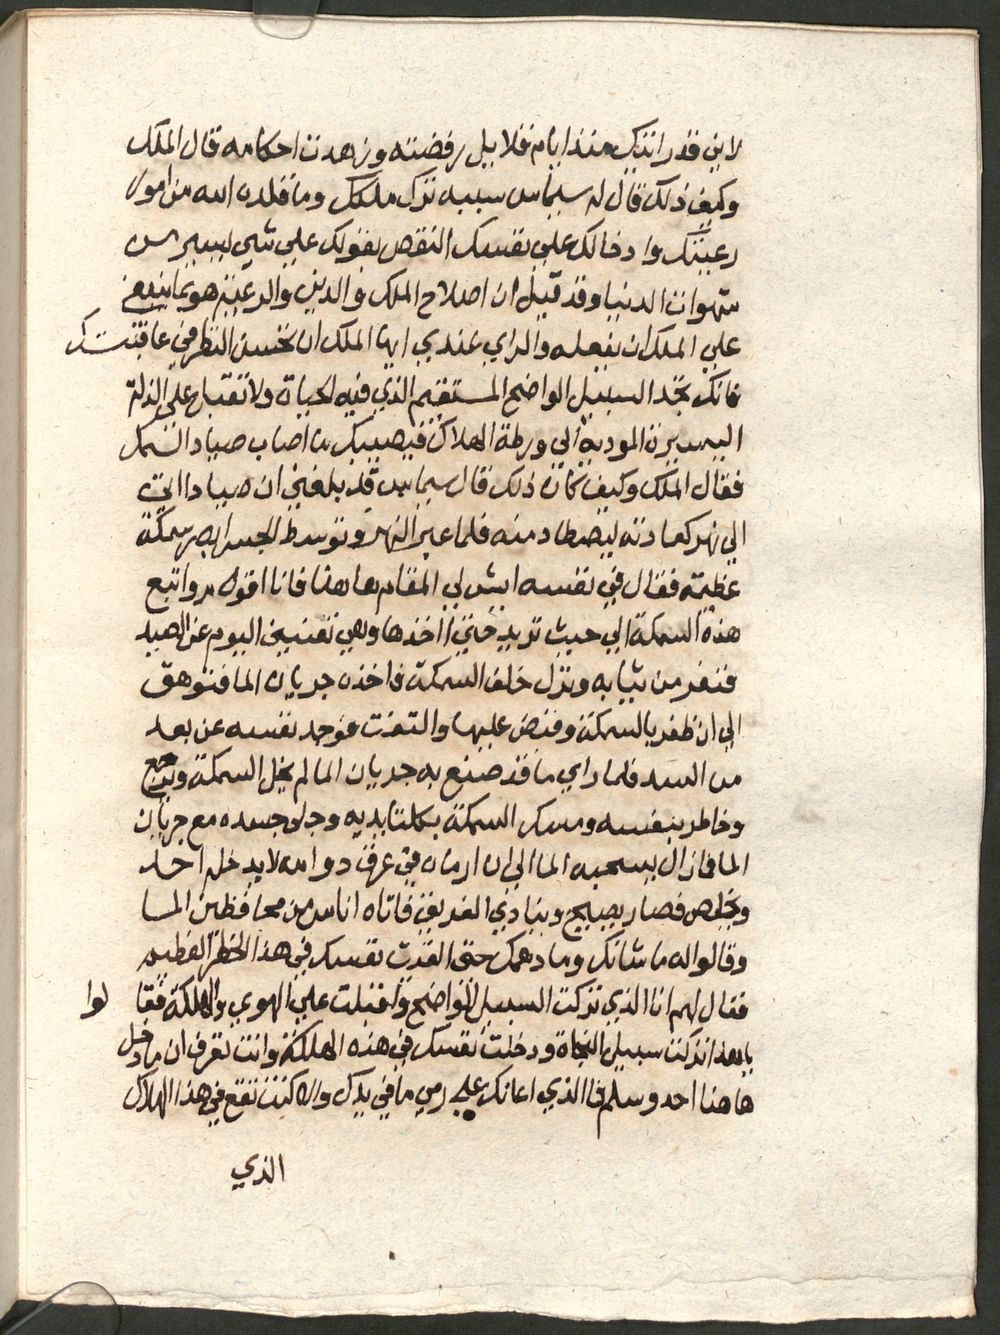 لاني قد رايتك منذ ايام قلايل رفضته وزهدت احكامه قال الملك
وكيف ذلك قال له سيماس سببه تركك ملكك وما قلدك الله من امور
رعيتك وادخالك علي نفسك النقص بقولك علي شي يسير من
شهوات الدنيا وقد قيل ان اصلاح الملك والدين والرعية هو مما ينبغ
علي الملك ان يفعله والراي عندي ايها الملك ان تحسن النظر في عاقبتك
فانك تجد السبيل الواضح المستقيم الذي فيه الحياة ولا تقتبل علي الذلة
اليسيرة المودية الي ورطة الهلاك فيصيبك ما اصاب صياد السمك
فقال الملك وكيف كان ذلك قال سيماس قد بلغني ان صيادا اتي
الي نهر كعادته ليصطاد منه فلما عبر النهر وتوسط الجسر ابصر سمكة
عظيمة فقال في نفسه ايش لي المقام هاهنا فانا اقوم واتبع
هذه السمكة الي حيث تريد حتي اخذها وهي تغنيني اليوم عن الصيد
فنفر من ثيابه ونزل خلف السمكة فاخذه جريان الما فتوهق
الي ان ظفر بالسمكة وقبض عليها والتفت فوجد نفسه عن بعد
من السد فلما راي ما قد صنع به جريان الما لم يخل السمكة ويرجع
وخاطر بنفسه ومسك السمكة بكلتا يديه وخلى جسده مع جريان
الما فما زال يسحبه الما الي ان ارماه في عرق دوامه لا يدخله احد
ويخلص فصار يصيح وينادي الغريق فاتاه اناس من محافظين الما
وقالوا له ما شانك وما دهمك حتي القيت نفسك في هذا الخطر العظيم
فقال لهم انا الذي تركت السبيل الواضح واقبلت علي الهوي والهلكة فقالوا
يا هذا انت تركت سبيل النجاة ودخلت نفسك في هذه الهلكة وانت تعرف ان ما دخل
هاهنا احد وسلم فما الذي اعانك علي رمي ما في يدك والا كنت تقع في هذا الهلاك
الذي